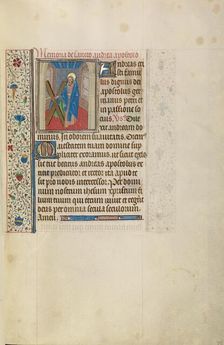 Memoria de sancto andrea apostolo
Andreas cri
sti famu
lus dignus dei
apostolus ger
manus petri et
in passione so
cius Vs Dine
xit andream do
minus. In odorem suauitatis. Oratio
Maiestatem tuam domine sup
pliciter exoramus: ut sicut eccle
sie tue beatus andreas apostolus ex
titit predicator: et rector: ita apud te
sit pro nobis intercessor. Per domi
num nostrum ihesum xpristum fi
lium tuum qui tecum uiuit et regnat
deus per omnia secula seculorum.
Amen